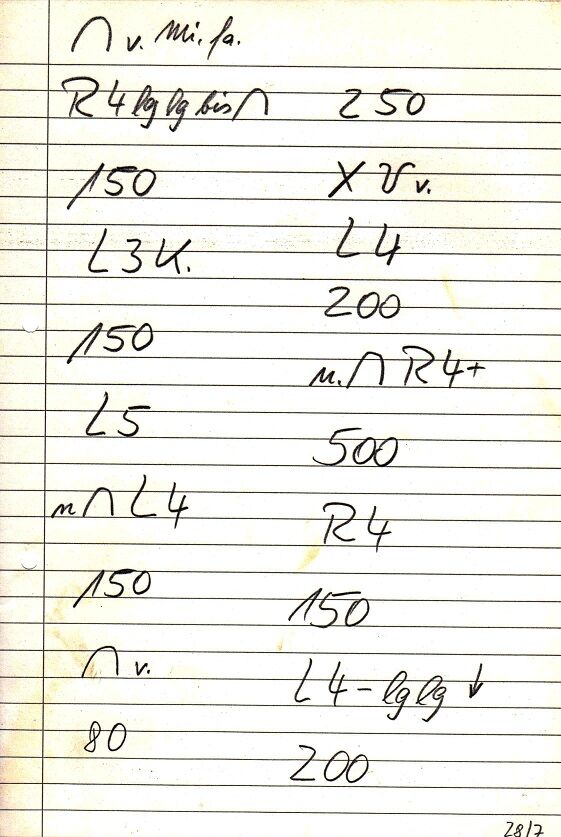 ∩ v. Mi. fa.
R4 lg lg bis ∩
150
L3 K.
150
L5
n ∩ L4
150
∩ v.
80
250
X V v.
L4
200
n. ∩ R4+
500
R4
150
L4 - lg lg ↓
200
28/7